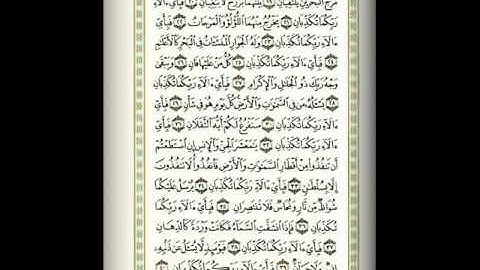 مَرَجَ ٱلْبَحْرَيْنِ يَلْتَقِيَانِ ١٩ بَيْنَهُمَا بَرْزَخٌ لَّا يَبْغِيَانِ ٢٠ فَبِأَيِّ ءَالَآءِ
رَبِّكُمَا تُكَذِّبَانِ ٢١ يَخْرُجُ مِنْهُمَا ٱللُّؤْلُؤُ وَٱلْمَرْجَانُ ٢٢ فَبِأَيِّ
ءَالَآءِ رَبِّكُمَا تُكَذِّبَانِ ٢٣ وَلَهُ ٱلْجَوَارِ ٱلْمُنشَـَٔاتُ فِى ٱلْبَحْرِ كَٱلْأَعْلَـٰمِ
٢٤ فَبِأَيِّ ءَالَآءِ رَبِّكُمَا تُكَذِّبَانِ ٢٥ كُلُّ مَنْ عَلَيْهَا فَانٍ ٢٦ وَيَبْقَىٰ
وَجْهُ رَبِّكَ ذُو ٱلْجَلَـٰلِ وَٱلْإِكْرَامِ ٢٧ فَبِأَيِّ ءَالَآءِ رَبِّكُمَا تُكَذِّبَانِ
٢٨ يَسْـَٔلُهُۥ مَن فِى ٱلسَّمَـٰوَٰتِ وَٱلْأَرْضِ كُلَّ يَوْمٍ هُوَ فِى شَأْنٍ ٢٩ فَبِأَيِّ
ءَالَآءِ رَبِّكُمَا تُكَذِّبَانِ ٣٠ سَنَفْرُغُ لَكُمْ أَيُّهَ ٱلثَّقَلَانِ ٣١ فَبِأَيِّ
ءَالَآءِ رَبِّكُمَا تُكَذِّبَانِ ٣٢ يَـٰمَعْشَرَ ٱلْجِنِّ وَٱلْإِنسِ إِنِ ٱسْتَطَعْتُمْ
أَن تَنفُذُوا۟ مِنْ أَقْطَارِ ٱلسَّمَـٰوَٰتِ وَٱلْأَرْضِ فَٱنفُذُوا۟ لَا تَنفُذُونَ
إِلَّا بِسُلْطَـٰنٍ ٣٣ فَبِأَيِّ ءَالَآءِ رَبِّكُمَا تُكَذِّبَانِ ٣٤ يُرْسَلُ عَلَيْكُمَا
شُوَاظٌ مِّن نَّارٍ وَنُحَاسٌ فَلَا تَنتَصِرَانِ ٣٥ فَبِأَيِّ ءَالَآءِ رَبِّكُمَا
تُكَذِّبَانِ ٣٦ فَإِذَا ٱنشَقَّتِ ٱلسَّمَآءُ فَكَانَتْ وَرْدَةً كَٱلدِّهَانِ
٣٧ فَبِأَيِّ ءَالَآءِ رَبِّكُمَا تُكَذِّبَانِ ٣٨ فَيَوْمَئِذٍ لَّا يُسْـَٔلُ عَن ذَنۢبِهِۦٓ
إِنسٌ وَلَا جَآنٌّ ٣٩ فَبِأَيِّ ءَالَآءِ رَبِّكُمَا تُكَذِّبَانِ ٤٠